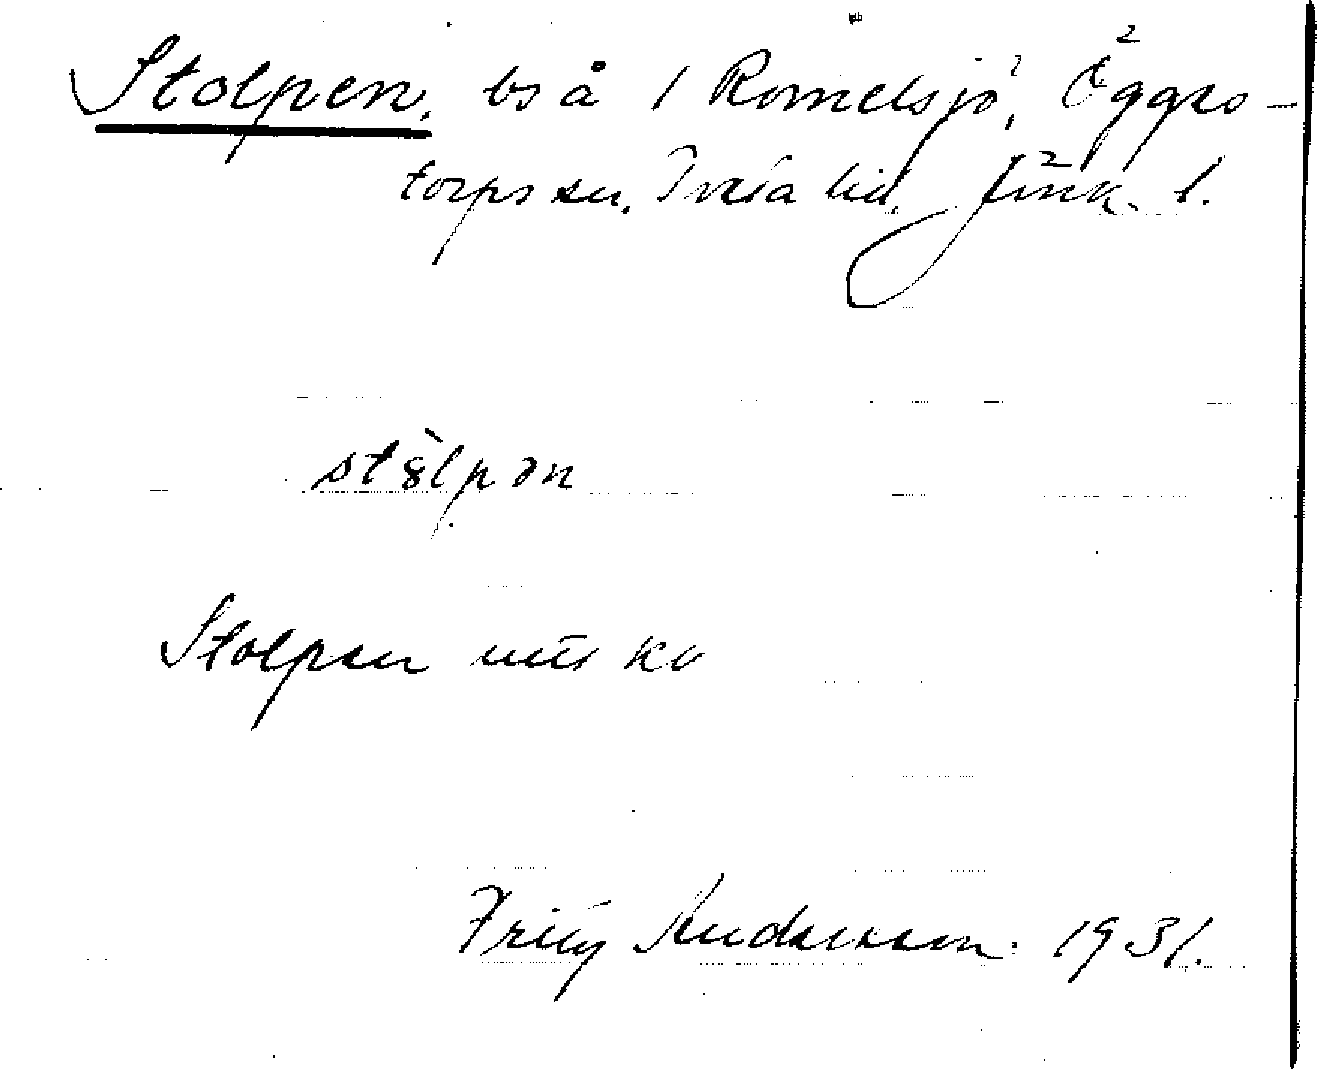 Stolpen, bs å 1 Romelsjö, Ögges-
torps sn. Tveta hd, Jönk. l.
stålpən
Stolpen
Fritz Andersson. 1931.